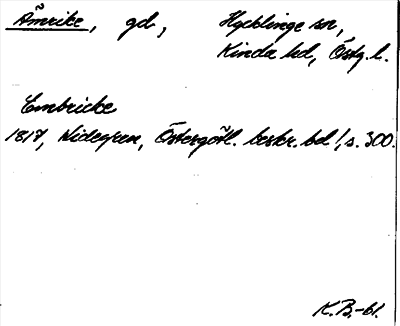 Ämrike, gd, Hycklinge sn,
Kinda hd, Östg. l.
Embricke
1817, Widegren, Östergötl. beskr. bd 1, s. 300.
K.B.-61.